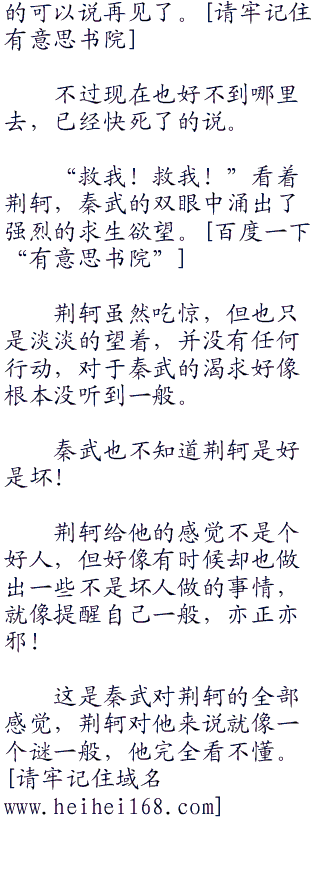 的可以说再见了。[请牢记住
有意思书院]
不过现在也好不到哪里
去，已经快死了的说。
“救我！救我！”看着
荆轲，秦武的双眼中涌出了
强烈的求生欲望。[百度一下
“有意思书院”]
荆轲虽然吃惊，但也只
是淡淡的望着，并没有任何
行动，对于秦武的渴求好像
根本没听到一般。
秦武也不知道荆轲是好
是坏！
荆轲给他的感觉不是个
好人，但好像有时候却也做
出一些不是坏人做的事情，
就像提醒自己一般，亦正亦
邪！
这是秦武对荆轲的全部
感觉，荆轲对他来说就像一
个谜一般，他完全看不懂。
[请牢记住域名
www.heihei168.com]